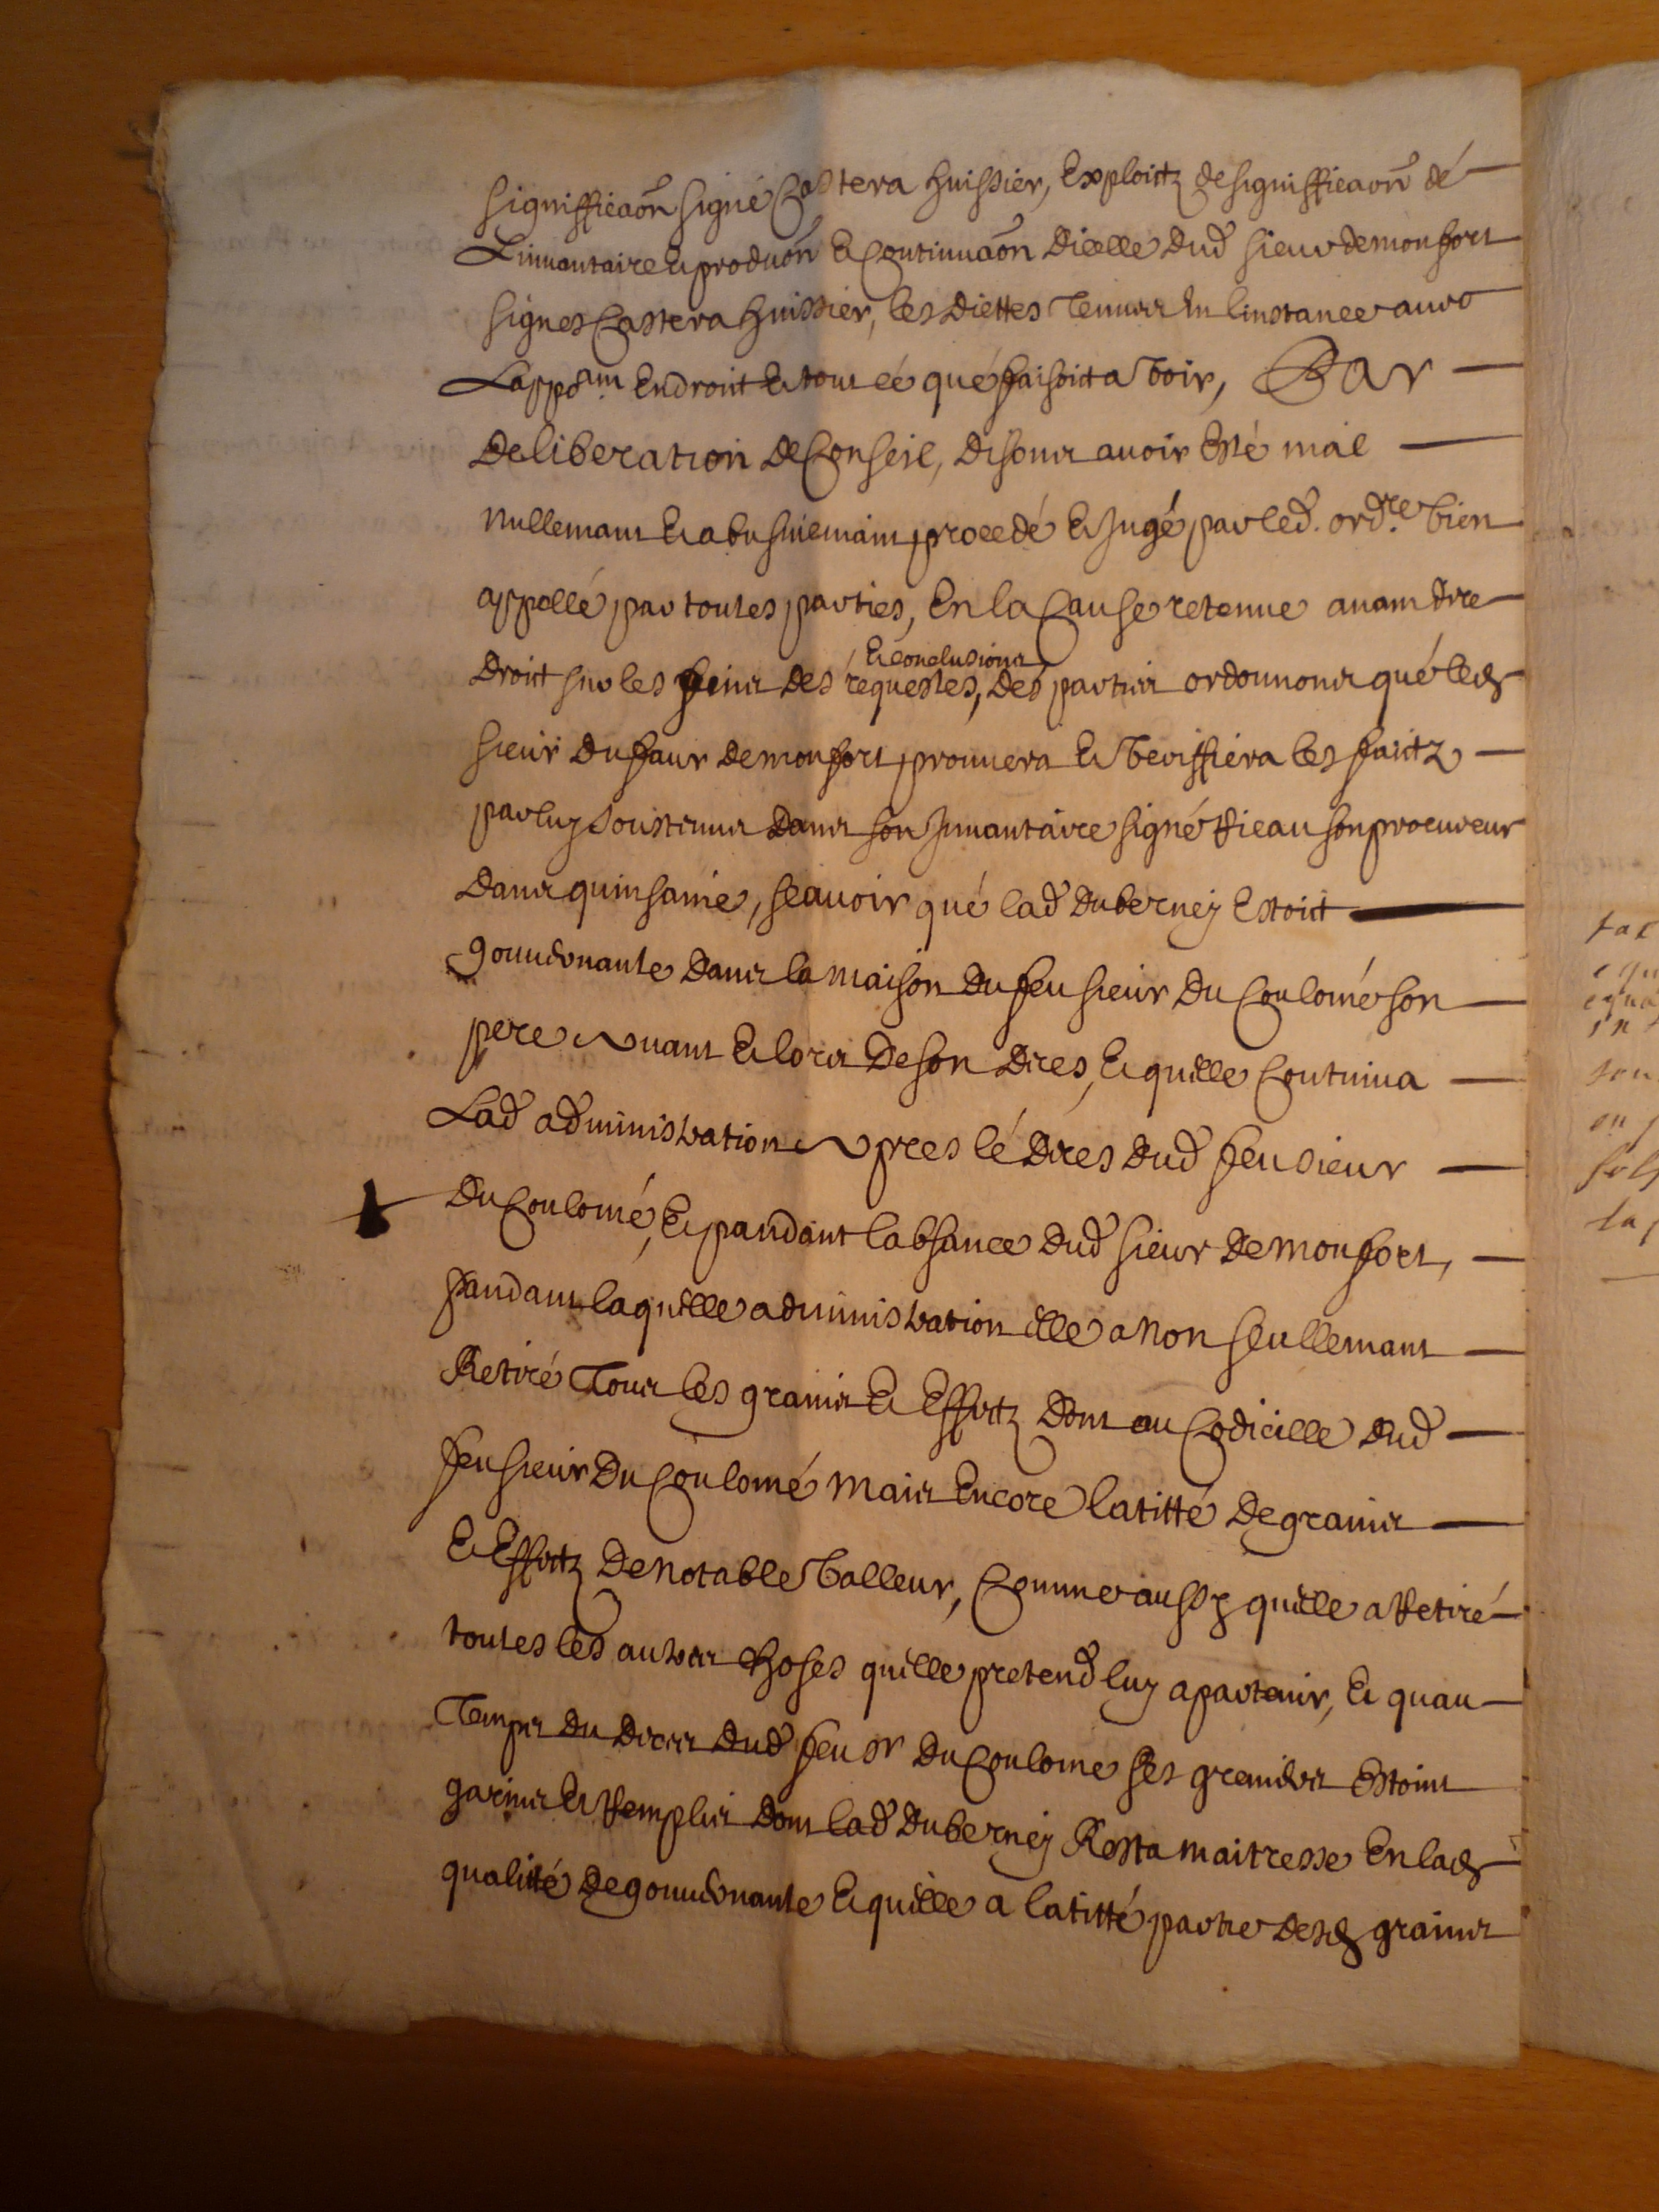 signifficaõn signé Castera huissier, Exploictz de signifficaõn dé
Linuantaire et produõn et Continuaõn dicelle dud sieur de monfort
signes Castera huissier, les diettes tenues en linstance auec
Lappoinm en droit et tout cé qué faisoit a voir, Par
deliberation de Conseil, disons auoir Esté mal
nullemant et abusiuemant procedé et Jugé par led. ordre bien
appellé par toutes parties, En la Cause retenue auant dire
et conclusions
droit sur les fins des requestes, des parties ordonnons qué led
sieur du faur de monfort prouuera et veriffiera les faictz
par luy soustenus dans son Jnuantaire signé Rieau son procureur
dans quinsaine, scauoir qué lad duberney Estoit
gouuernante dans la maison du feu sieur du Coulomé son
pere auant et lors de son déces, et quelle Continua
Lad administration apres lé déces dud feu sieur
du Coulomé, et pandant labsance dud sieur de monfort,
pandant laquelle administration elle a non seullemant
Retiré tous les grains et Effectz dont au Codicille dud
feu sieur du Coulomé mais Encore latitté de grains
et Effectz de notable valleur, Comme aussy quelle a Retiré
toutes les autres choses quelle pretend luy apartenir, et quau
temps du déces dud feu sr du Coulome ses greniers Estoint
garnis et Remplis dont lad duberney Resta maitresse En lad
qualitté de gouuernante et quelle a latitté partie desd grains